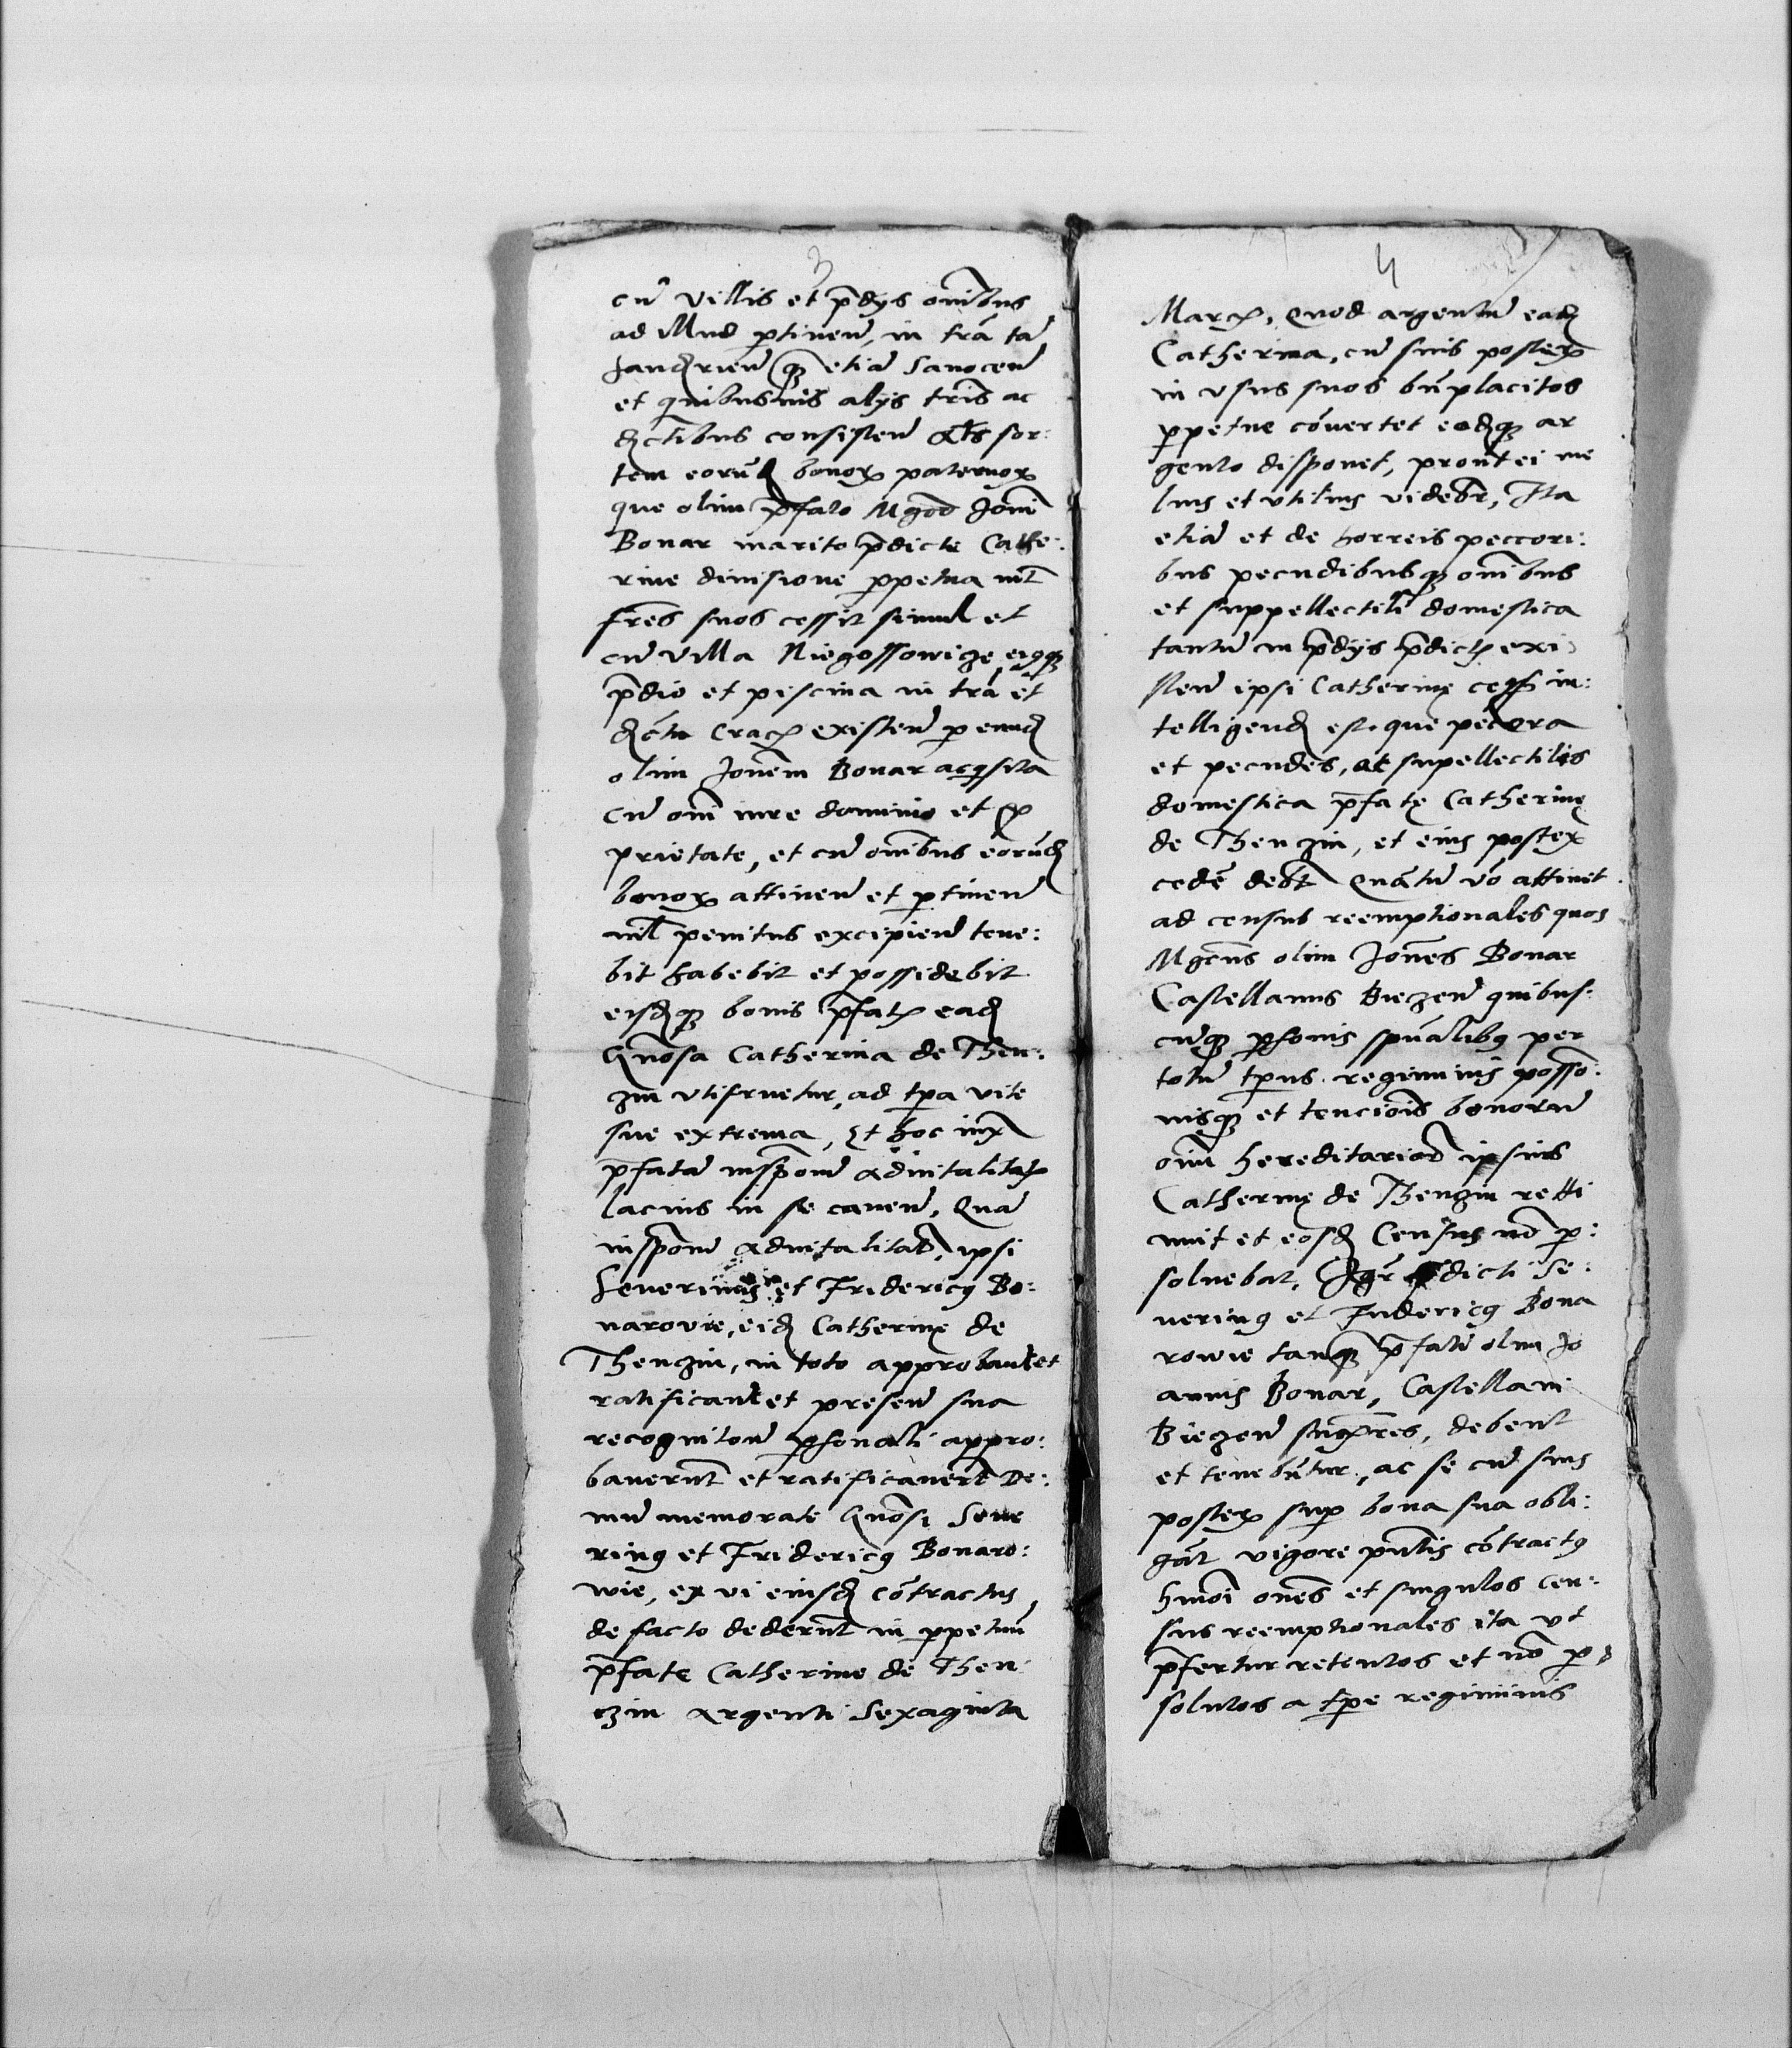 3
cu͂ villis et p̄dys om̄ibus
ad illud ꝑtinen͂, in tr̄a ta͂
Sand̄rien͂ qꝫ etia͂ Sanocen͂
et quibusuis alys tr̄is ac
consisten͂ sor:
tem eorūd bonoꝝ paternoꝝ
que olim p̄fato Mgco Joni
Bonar marito p̄dicte Cathe:
rine diuisione ꝑpetua int͂
fr̄es suos cessit simul et
cu͂ villa Niegossowicze, eiqꝫ
p̄dio et piscina in tr̄a et
Cracꝭ existen͂ ꝑ eund̄
olim Jonem Bonar acqsita
cu͂ om̄i iure dominio et ꝓ
prietate, et cu͂ om̄ibus eorūd̄
bonoꝝ attinen͂ et ꝑtinen͂
nil penitus excipien͂ tene:
bit habebit et possidebit
eisd̄qꝫ bonis p̄fatꝭ ead̄
Gnosa Catherina de Then:
zin vtifruetur, ad tꝑa vite
sue extrema, Et hoc iux͂
p̄fata͂ inspcion͂ aduitalitatꝭ
lacius in se canen͂, Qua͂
inspcion͂ aduitalitat͂, ipsi
Seuerinus et Fridericꝰ Bo:
narowie, eid̄ Catherinę de
Thenzin, in toto approbant et
ratificant et presen͂ sua
recognition͂ ꝑsonali appro:
bauerūt et ratificauerūt De:
mu͂ memorate Gnosi Seue
rinꝰ et Fridericꝰ Bonaro:
wie, ex vi eiusd̄ cōtractus
de facto dederūt in ꝑpetuū
p̄fate Catherine de Then
czin argenti Sexaginta
4
Marcꝭ, Quod argentu͂ ead̄
Catherina, cu͂ suis posterꝭ
in vsus suos bn̄placitos
ꝑpetue cōuertet eodqꝫ ar
gento disponet, prout ei me
lius et vtilius videbr̄, Ita
etia͂ et de horreis peccori:
bus pecudibusqꝫ om̄ibus
et suppellectili domestica
tantu͂ in p̄dys p̄dictꝭ exi
sten͂ ipsi Catherinę in:
telligend̄ est que pecora
et pecudes, ac supellectilis
domestica p̄fatę Catherinę
de Thenzin, et eius posterꝭ
cedē debt Quātu͂ vo attinet
ad census reemptionales quos
Mgcus olim Jonnes Bonar
Castellanus Biezen͂ quibus:
cūqꝫ ꝑsonis spūalibꝰ per
totu͂ tꝑus regiminis posso:
nisqꝫ et tencionis bonoru͂
om̄i hereditariorꝭ ipsius
Catherinę de Thenzin reti
nuit et eosd̄ Census nō ꝑ:
soluebat, Igr̄ dicti Se:
uerinꝰ et Fridericꝰ Bona
rowie tanqꝫ p̄fati olim Jo
annis Bonar, Castellani
Biezen͂ succ͂res, debent
et tenebūtur, ac se cu͂ suis
posterꝭ suꝑ bona sua obli:
gāt vigore pn̄tis cōtractꝰ
hmōi om̄es et singulos Cen:
sus reemptionales ita vt
p̄fertur retentos et nō ꝑ
solutos a tꝑe regiminis